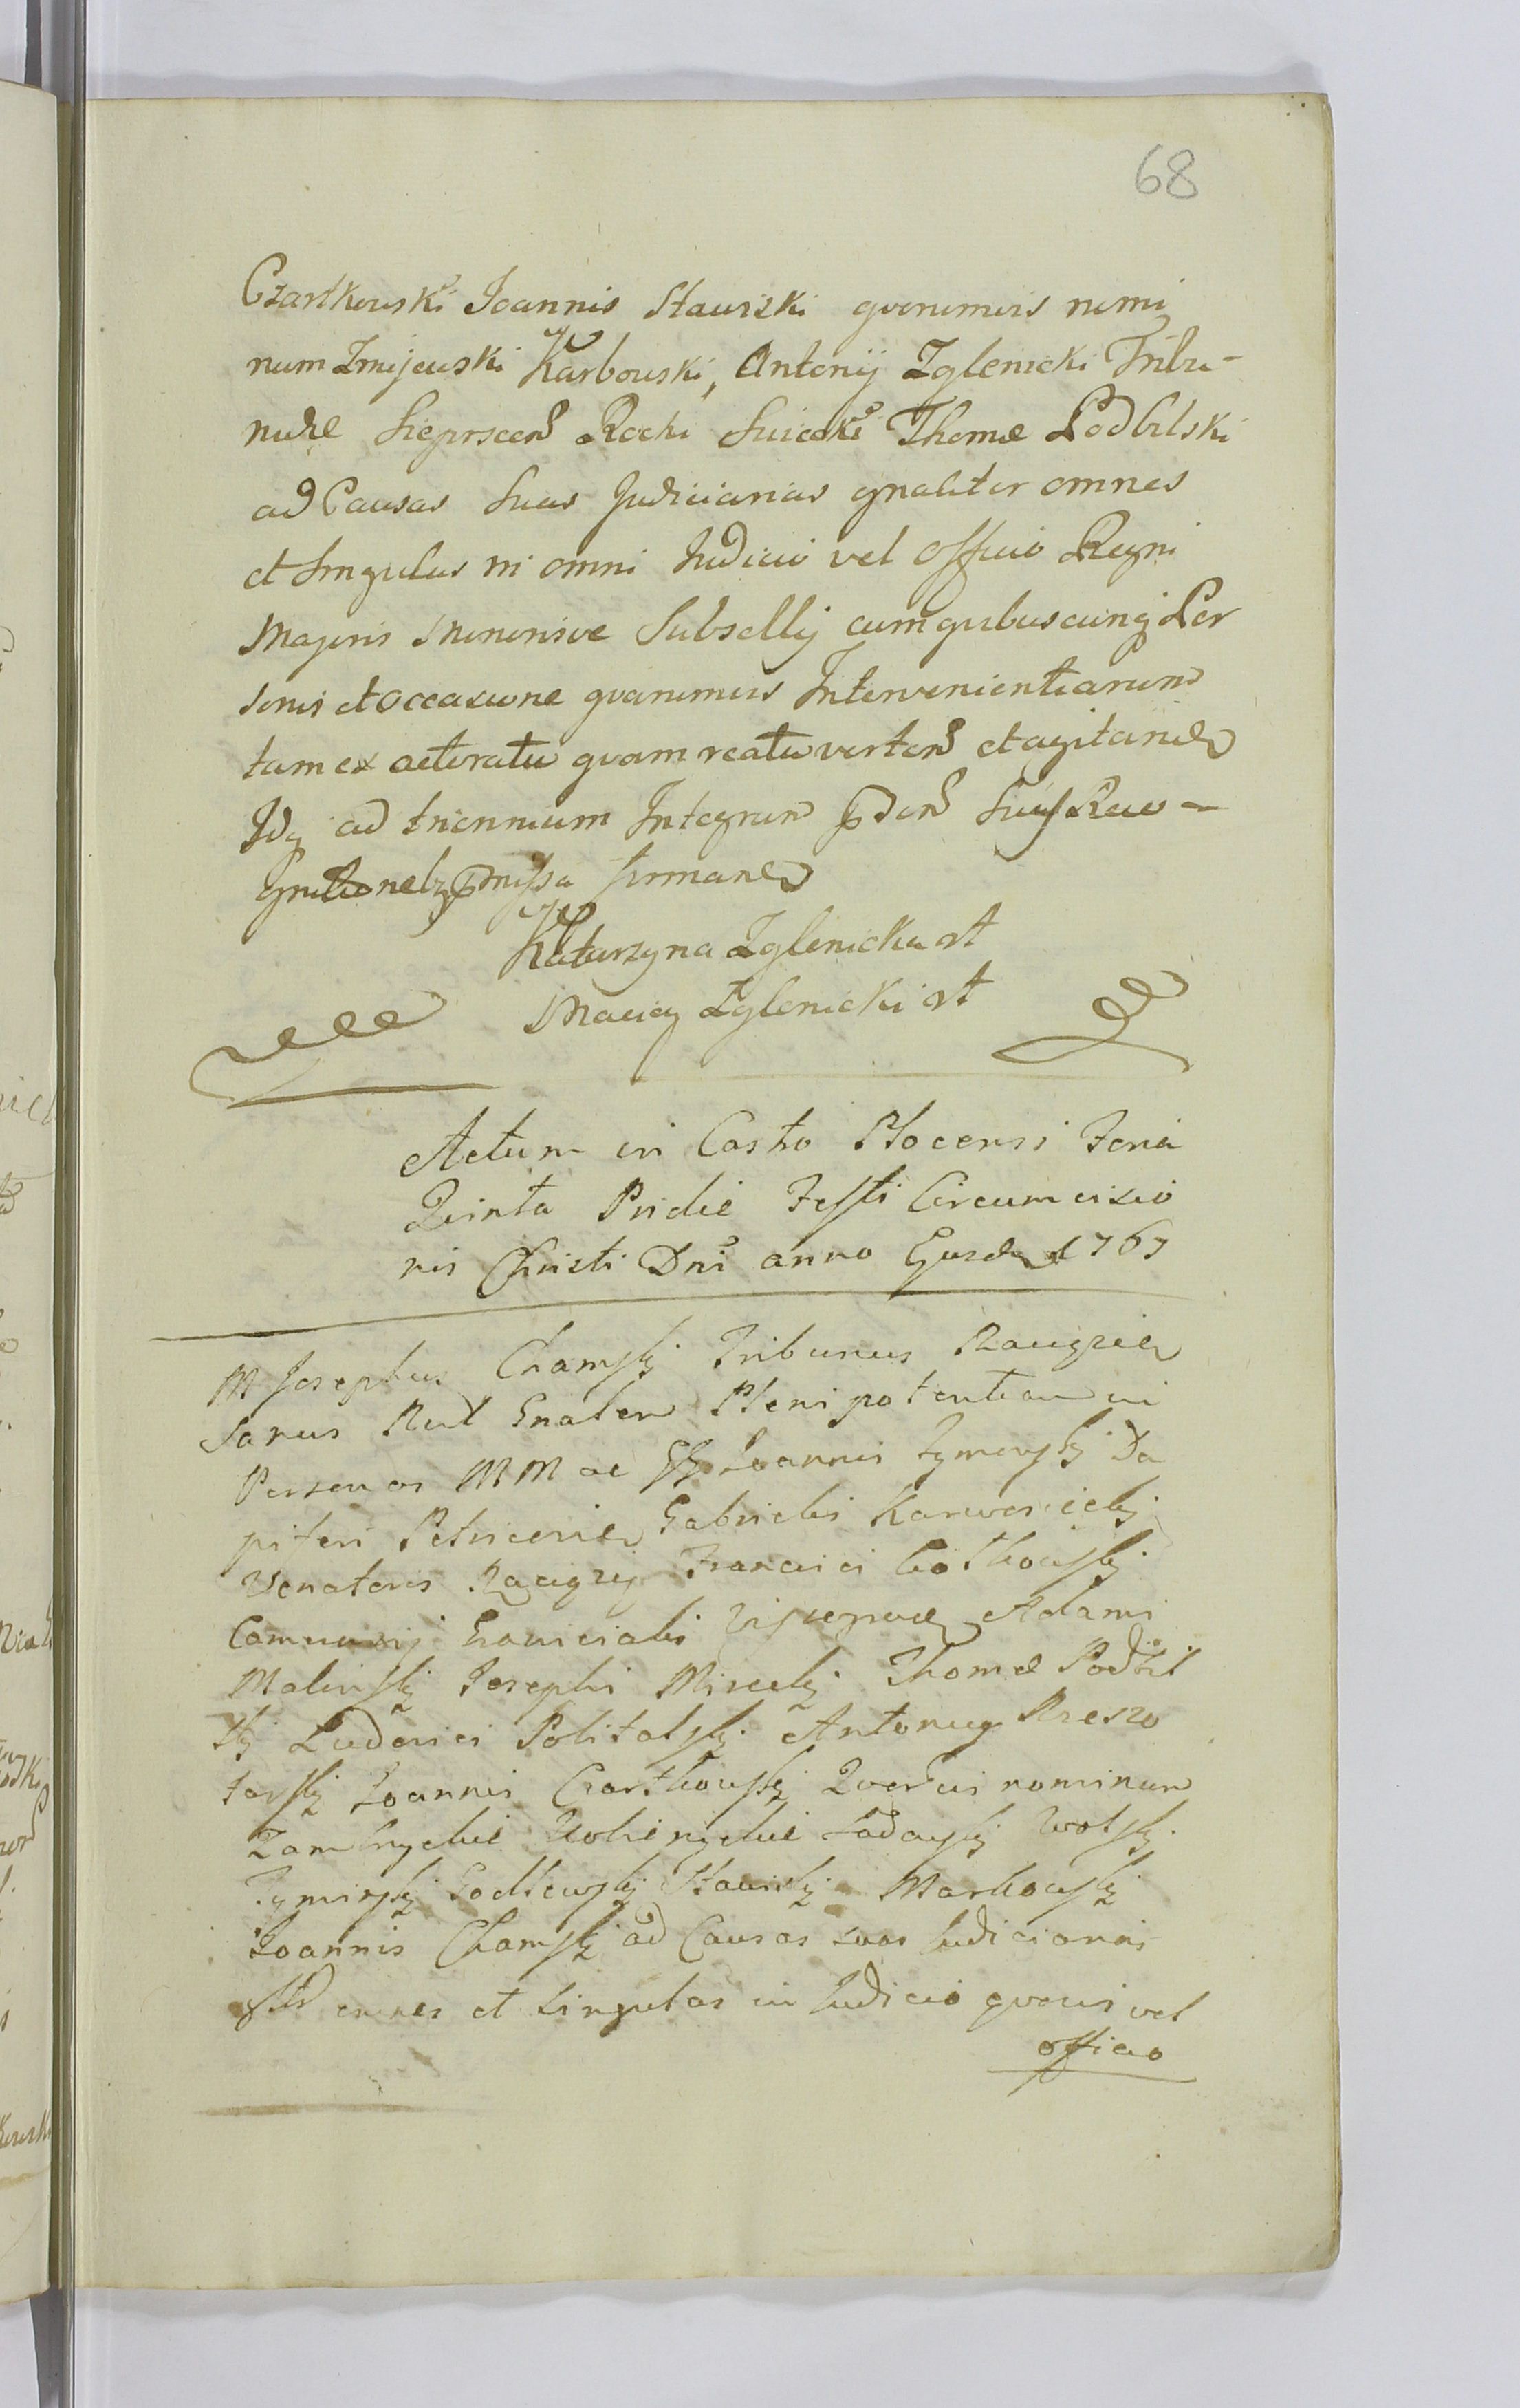 68
Czartkowski Joannis Stawiski quorumvis nomi
num Zmijewski Karbowski, Antonij Zglenicki Tribu-
nidae Sieprscen Rochi Suiecki Thomae Podbilski
ad Causas Suas Judiciarias gnaliter omnes
et Singulas in omni Judicio vel Officio Regni
Majoris Minorisve Subsellij cumquibuscunq Per
sonis et Occasione quarumvis Intervenientiarum
tam ex actoratu quam reatu verten et agitand
Idq ad triennium Integrum Suis Reco-
gnitionebz pmissa firmand
Katarzyna Zglenicka st
Maciey Zglenicki st
Actum in Castro Plocensi Feria
Quinta Pridie Festi Circumcisio
nis Christi Dni anno Ejusdem 1767
M Josephus Chamski Tribunus Raciązen
Sanus Gnalem Plenipotentiam in
Personas MM ac Joannis Zymirski Da
piferi Gabrielis Karwosiecki
Venatoris Franciici
Adami
Malinski Josephi Misecki Thomae Podbil
ski Ludovici Politalski Antonij Rzeszo
tarski Joannis Czartkowski Quorvis nominum
Zambrzyckie Ladayski Wolski
Zymirski Godlewski Stawiski Markowski
Joannis Chamski ad Causas suas Judiciarias
omnes et Singulas in Judicio quovis vel
officio